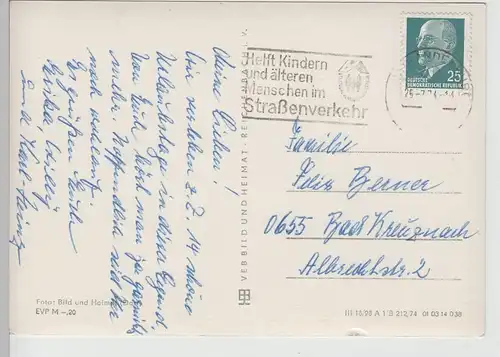 Meine Lieben!
Wir verleben z.Z. 14 schöne
Urlaubstage in dieser Gegend.
Von Euch hört man ja garnichts
mehr. Hoffentlich nicht
noch
Es grüßen Euch
Erika,
und Karl-Heinz
Foto: Bild und Heimat
EVP M –,20
VEB BILD UND HEIMAT · REICHENBACH i. V.
Helft Kindern
und älteren
Menschen im
Straßenverkehr
25
DEUTSCHE
DEMOKRATISCHE REPUBLIK
Familie
Felix Berner
0655 Bad Kreuznach
Albrechtstr. 2
III/18/28 A 1 B 212/74 01 03 14 038